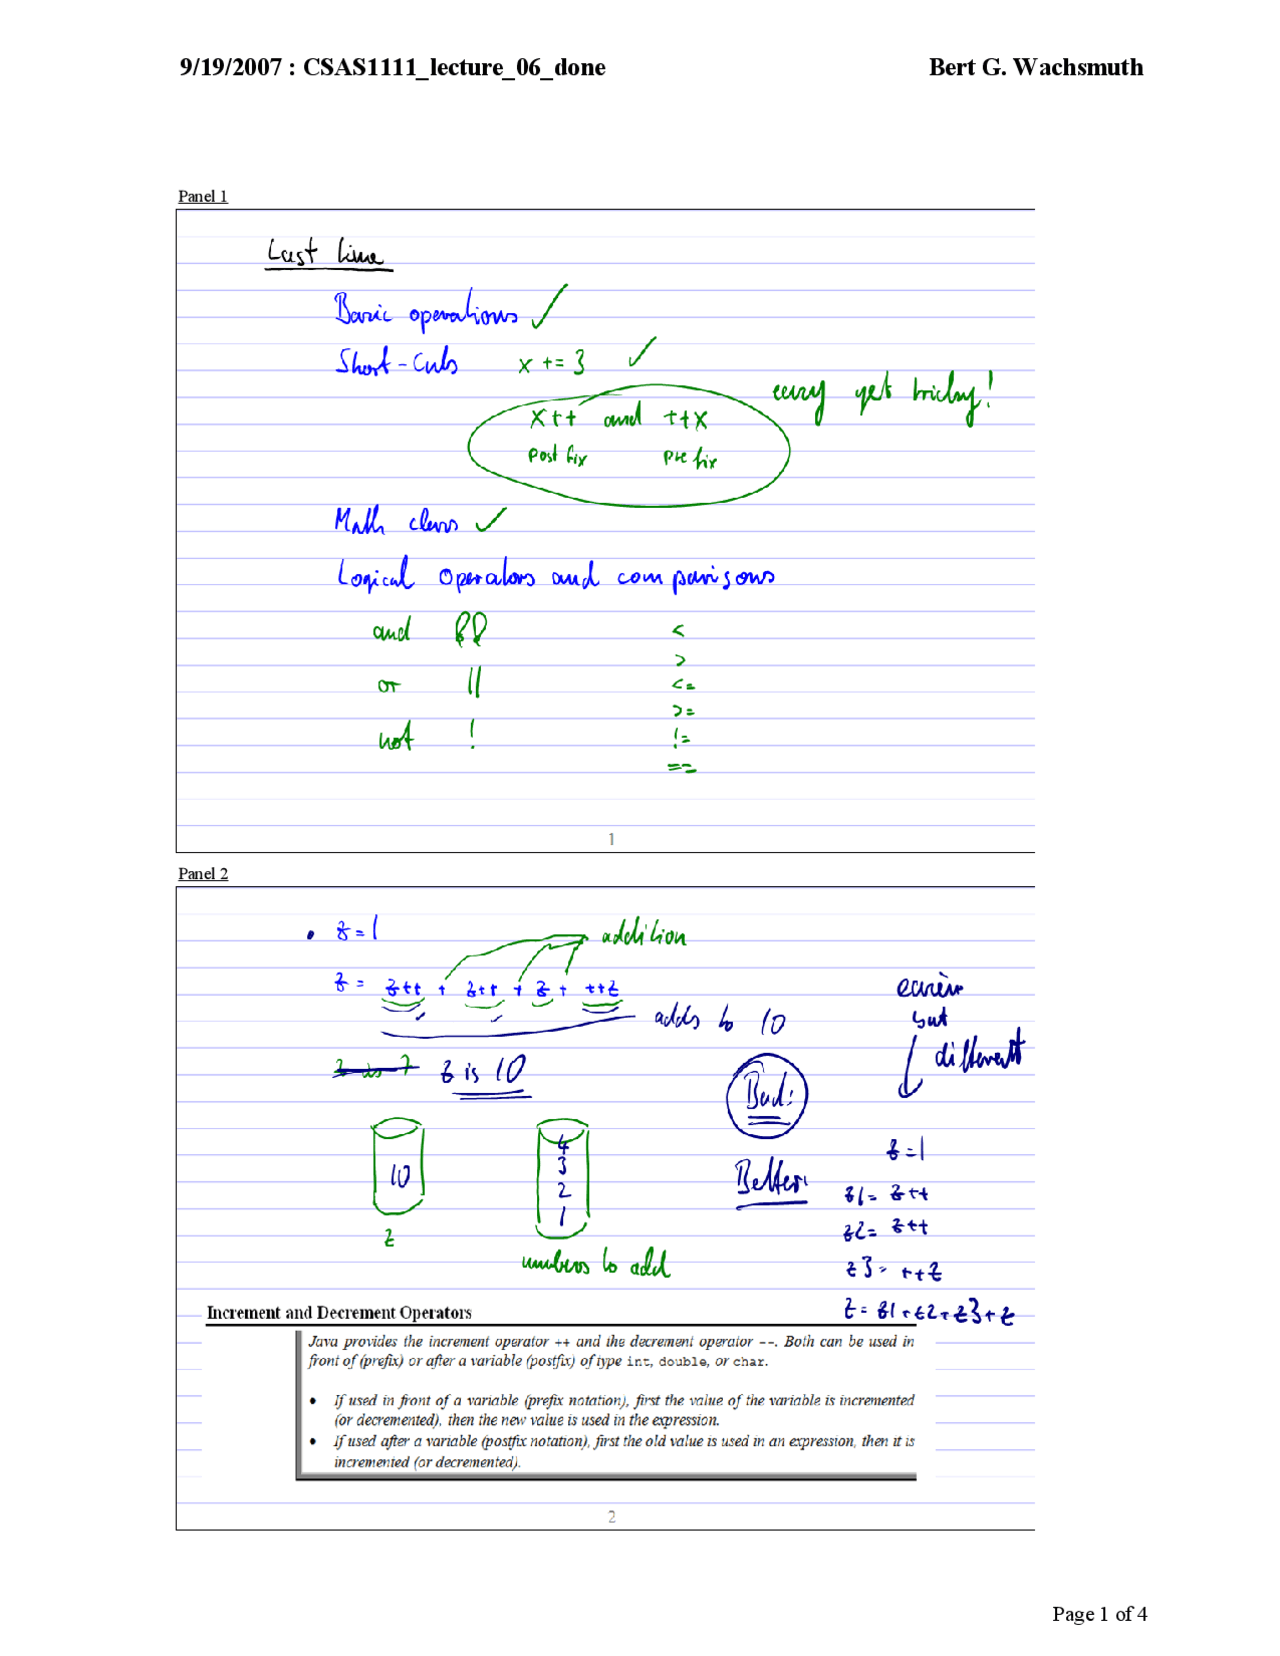 9/19/2007 : CSAS1111_lecture_06_done Bert G. Wachsmuth
Panel 1
Last time
Basic operations ✓
Short-Cuts x += 3 ✓
easy yet tricky!
x++ and ++x
postfix prefix
Math class ✓
Logical operators and comparisons
and && <
>
or || <=
>=
not ! !=
==
1
Panel 2
• z = 1
addition
z = z++ + z++ + z + ++z
adds to 10
easier
but
different
z is 7 z is 10
Bad:
10
4
3
2
1
z
numbers to add
Better:
z = 1
z1 = z++
z2 = z++
z3 = ++z
z = z1 + z2 + z3 + z
Increment and Decrement Operators
Java provides the increment operator ++ and the decrement operator --. Both can be used in
front of (prefix) or after a variable (postfix) of type int, double, or char.
• If used in front of a variable (prefix notation), first the value of the variable is incremented
(or decremented), then the new value is used in the expression.
• If used after a variable (postfix notation), first the old value is used in an expression, then it is
incremented (or decremented).
2
Page 1 of 4